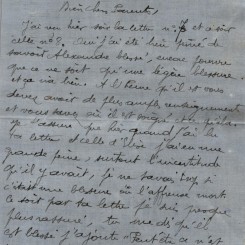 Bien chers Parents,
J'ai eu hier soir ta lettre n° 7 et ce soir
celle n° 8. Aussi j'ai été bien peiné de
savoir Alexandre blessé, encore
que ce ne soit qu'une légère blessure
et ça va bien. A l'heure qu'il est vous
devez avoir de plus amples renseignements
et vous savez où il est
que hier quand j'ai lu
ta lettre et celle d' j'ai eu une
grande peine, surtout l'incertitude
qu'il y avait, je ne savais trop si
c'était une blessure ou l'affreuse mort
ce soir par ta lettre je suis presque
plus rassuré, tu me dis qu'il
est blessé j'ajoute Peut être ce n'est